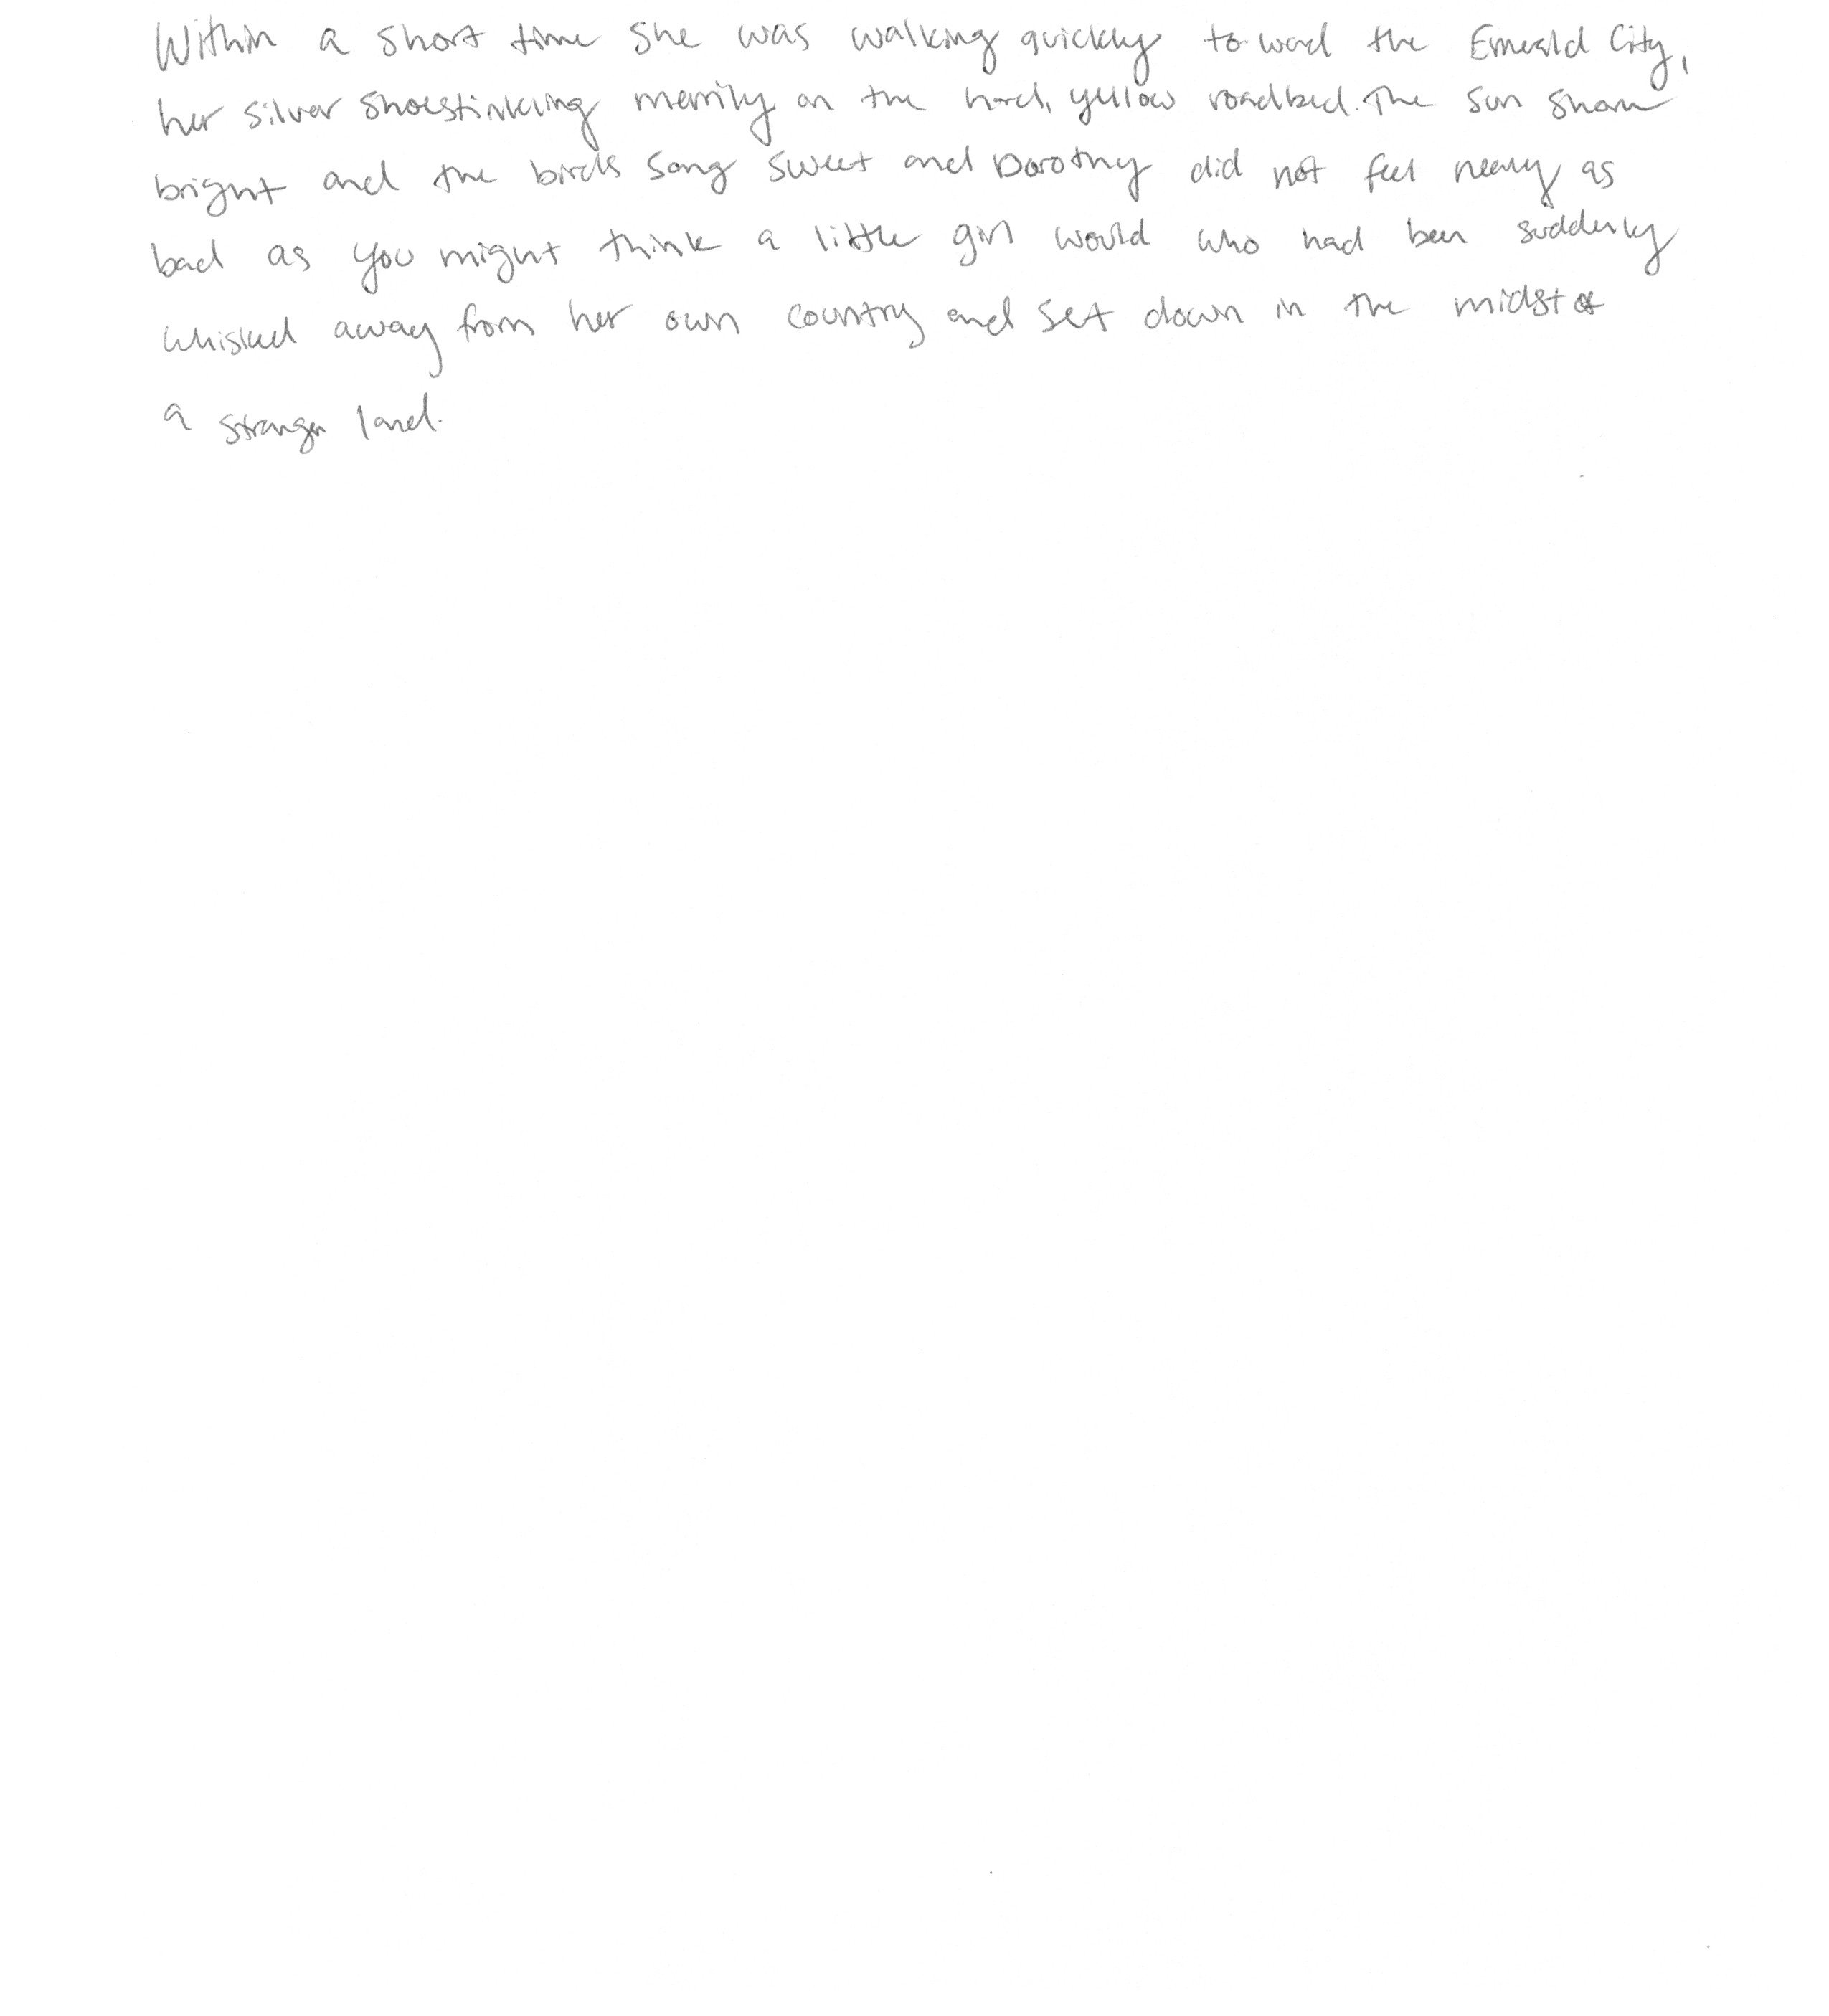 Within a short time she was walking quickly toward the Emerald City,
her silver shoes tinkling merrily on the hard, yellow roadbed. The sun shone
bright and the birds sang sweet and Dorothy did not feel nearly as
bad as you might think a little girl would who had been suddenly
whisked away from her own country and set down in the midst of
a strange land.